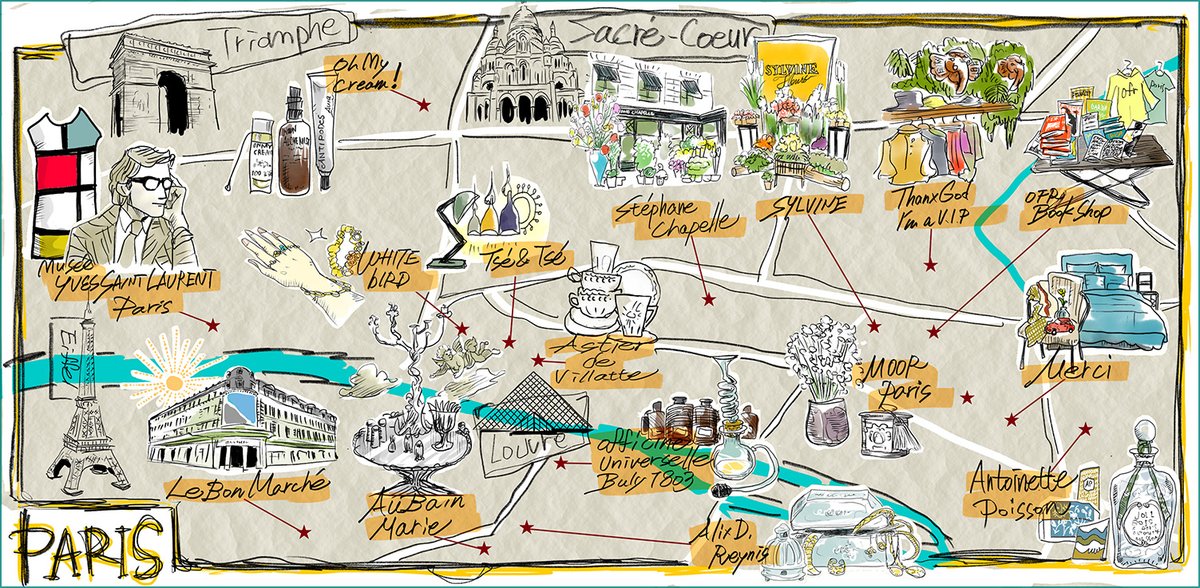 Triomphe
Sacré-Coeur
oh My
cream!
SYLVINE
CHAPELLE
ofr
Paris
Stéphane
Chapelle
SYLVINE
ThanxGod
I'm a V.I.P
OFR.
Book Shop
WHITE
biRD
Tsé & Tsé
Musée
YVES SAINT LAURENT
Paris
Astier
de
Villatte
MOOR
Paris
Merci
Louvre
officine
Universelle
Buly 1803
Le Bon Marché
Au Bain
Marie
Antoinette
Poisson
Alix D.
Reynis
PARIS